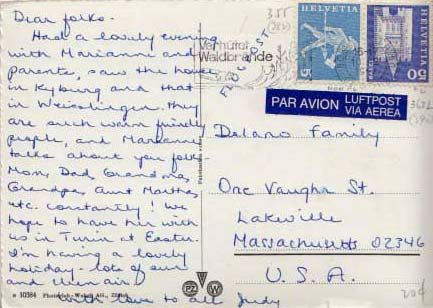 Dear folks.
Had a lovely evening
with Marianne and
parents, saw the house
in Kyburg and that
in Weisslingen. They
are such warm friendly
people, and Marianne
talks about you folks
Mom, Dad, Grandma,
Grandpa, Aunt Martha,
etc. constantly! We
hope to have her with
us in Turin at Easter.
I'm having a lovely
holiday - lots of sun
and clean air!
love to all Judy
10384 Photoglob-Wehrli AG., Zürich
PZ W
Verhütet
Waldbrände
FLUGPOST
HELVETIA
5
HELVETIA
50
355
PAR AVION LUFTPOST
VIA AEREA
Delano Family
One Vaughn St.
Lakeville
Massachusetts 02346
U.S.A.